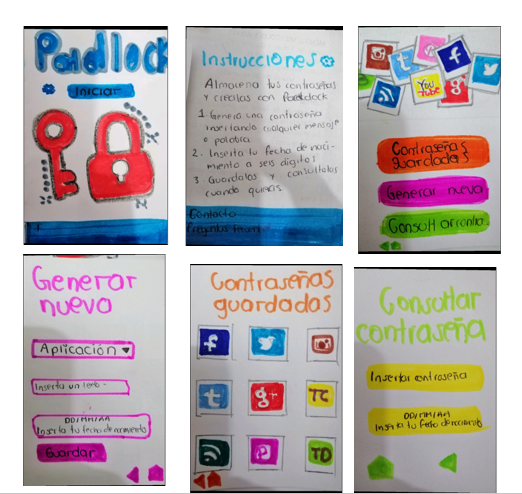 Padlock
Iniciar
Instrucciones
Almacena tus contraseñas
y crealas con Padlock
1. Genera una contraseña
insertando cualquier mensaje
o palabra
2. Inserta tu fecha de naci-
miento a seis digitos
3 Guardalas y consultalas
cuando quieras
Contacto
Preguntas
t
P
f
You
Tube
g+
Contraseñas
guardadas
Generar nueva
Consultar contra
Generar
nueva
Aplicación
Inserta un texto
DD/MM/AA
Inserta tu fecha de nacimiento
Guardar
Contraseñas
guardadas
f
t
g+
TC
P
TD
Consultar
contraseña
Insertar contraseña
DD/MM/AA
Inserta tu fecha de nacimiento